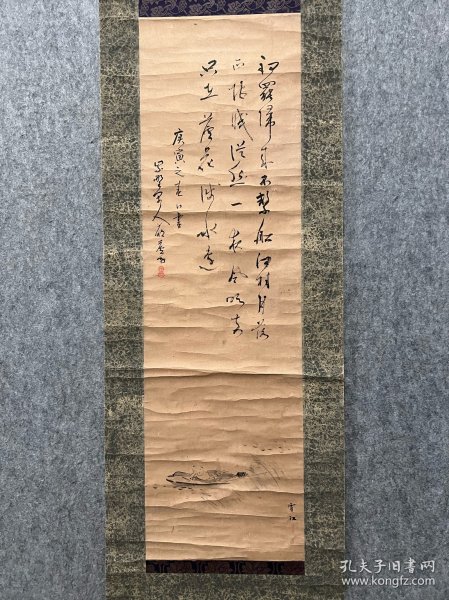 釣罷歸来不繋船江村月落
正堪眠従然一夜風吹去
只在蘆花淺水邊
庚寅之春日書
孔夫子旧书网
www.kongfz.com